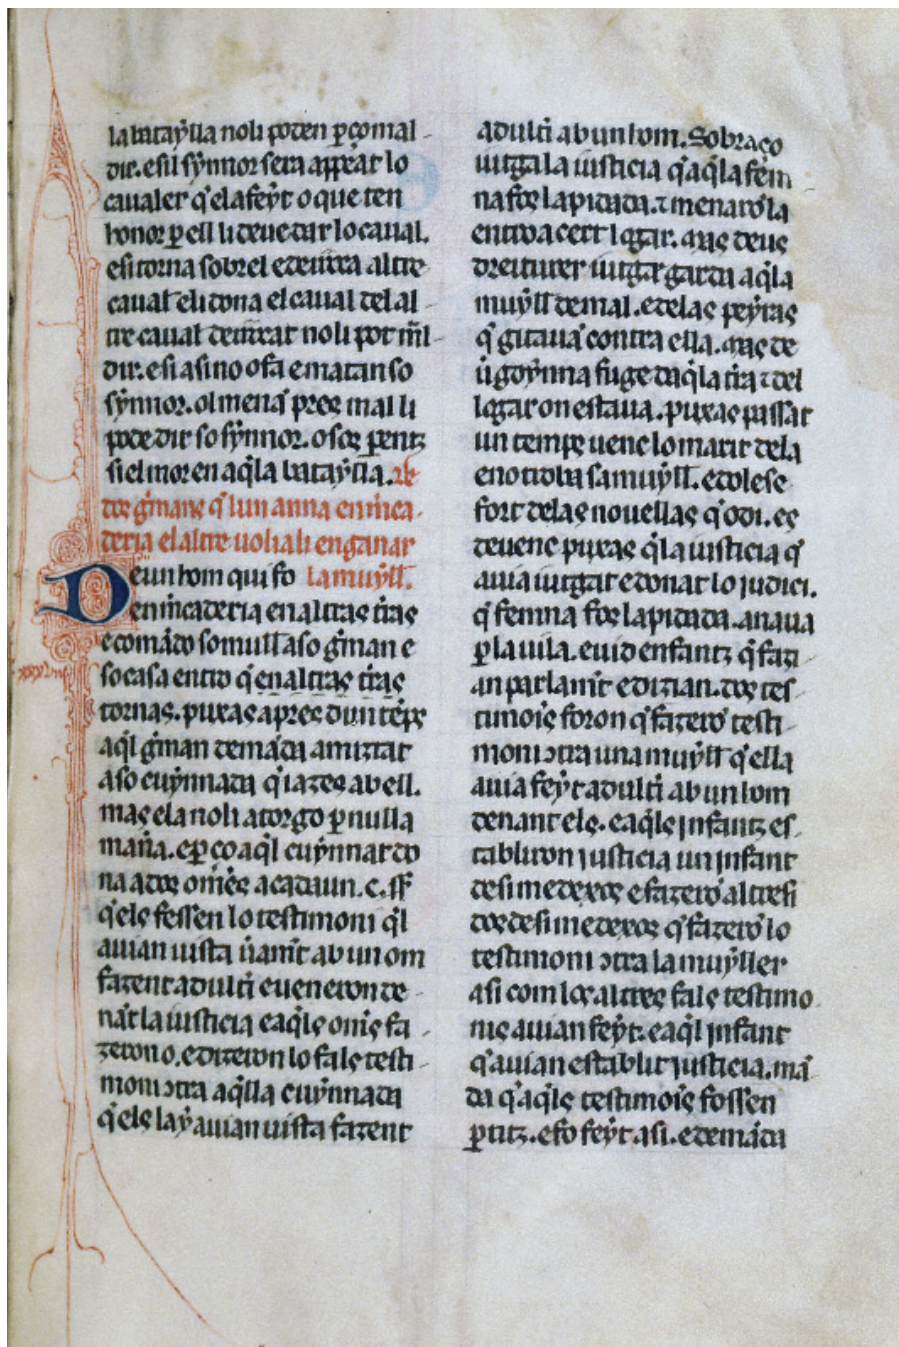 la bataylla noli poden p̱ço mal
dir. e sil synnor sera appeat lo
caualer q̇ ela feyt o que ten
honor p̱ ell li deue dar lo caual.
e si torna sobrel e derrca altre
caual eli dona el caual del al
tre caual derreat noli pot ml̄
dir. e si asi no o fa e matan so
synnor. ol menā pres mal li
pode dir so synnor. o sos p̱entz
si el mor en aq̄la batayla. de
dos g̉mans q̇ lun anna en m̉ca
deria el altre uoliali enganar
la muyll̄.
Deun hom qui fo
en m̉caderia en altras tr̄as
e comādo so mull̄ a so g̉man e
so casa entro q̇ en altras tr̄as
tornas. puxas apres dun tēps
aq̄l g̉man demāda amiztat
a so cuynnada q̇ iazes ab ell.
mas ela noli atorgo p̱ nulla
man̉a. e p̱ço aq̄l cuynnat do
na a dos omēs a cadaun .c. ss̄
q̇ els fessen lo testimoni q̄l
auian uista ủamt̄ ab un om
fazent adult̉i e ueneron de
nāt la iusticia e aq̄ls omēs fa
zeron o. e dizeron lo fals testi
moni ɔtra aq̄lla cuynnada
q̇ els lay auian uista fazent
adult̉i ab un hom. Sobraço
iutga la iusticia q̇ aq̄la fem
na fos lapidada. ⁊ menarō la
entro a cert logar. mas deus
dreiturer iutge garda aq̄la
muyll̄ de mal. e delas peyras
q̇ gitauā contra ella. mas de
ủgoynna fuge daq̄la tr̄a ⁊ del
logar on estaua. puxas passat
un temps uenc lo marit dela
e no troba sa muyll̄. e doles e
fort delas nouellas q̇ odi. es
deuenc puxas q̄ la iusticia q̇
auia iutgat e donat lo judici.
q̇ femna fos lapidada. anaua
p̱ la uila. e uio enfantz q̇ fazi
an parlamt̄ e dizian. dos tes
timoīs foron q̇ fazerō testi
moni ɔtra una muyll̄ q̇ ella
auia feyt adult̉i ab un hom
denant els. e aq̄ls jnfantz es
tabliron justicia un jnfant
desimedexos e fazerō altresi
dos desimedexos q̇ fazerō lo
testimoni ɔtra la muyller
asi com los altres fals testimo
nis auian feyt. e aq̄l jnfant
q̇ auian establit justicia. mā
da q̇ aq̄ls testimoīs fossen
p̱titz. e fo feyt asi. e demāda